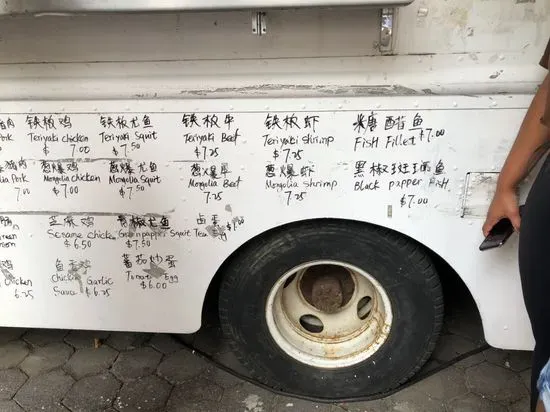 肉 铁板鸡 铁板尤鱼 铁板牛 铁板虾 米唐 醋鱼
Pork Teriyaki Chicken Teriyaki Squit Teriyaki Beef Teriyaki Shrimp Fish Fillet $7.00
$7.00 $7.50 $7.25 $7.25
肉 葱爆鸡 葱爆尤鱼 葱爆 葱爆虾 黑椒 鱼
Pork Mongolia Chicken Mongolia Squit Mongolia Beef Mongolia Shrimp Black papper Fish
7.00 $7.00 $7.50 7.25 7.25 $7.00
鸡 芝麻鸡 尤鱼 卤蛋 $1.00
Green Sesame chicken Green papper Squit Tea
$6.50 $7.50
鸡 鱼香鸡 蕃茄炒蛋
Chicken Chicken Garlic Tomato Egg
6.25 Sauce $6.25 $6.00